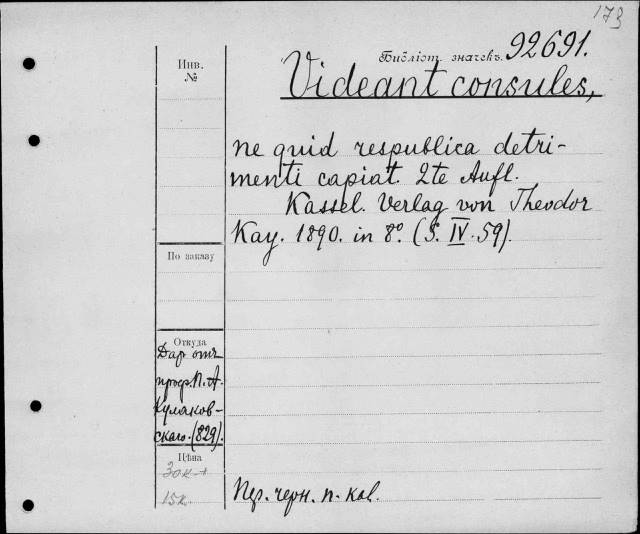 173
Библіот. значекъ 92691.
Инв.
№
Videant consules,
ne quid respublica detri-
menti capiat. 2te Aufl.
Kassel. Verlag von Theodor
Kay. 1890. in 8°. (S. IV. 59).
По заказу
Откуда
Дар отъ
проф. П. А.
Кулаков-
скаго. (829).
Цѣна
30к
15к.
Пер. черн. п. кал.